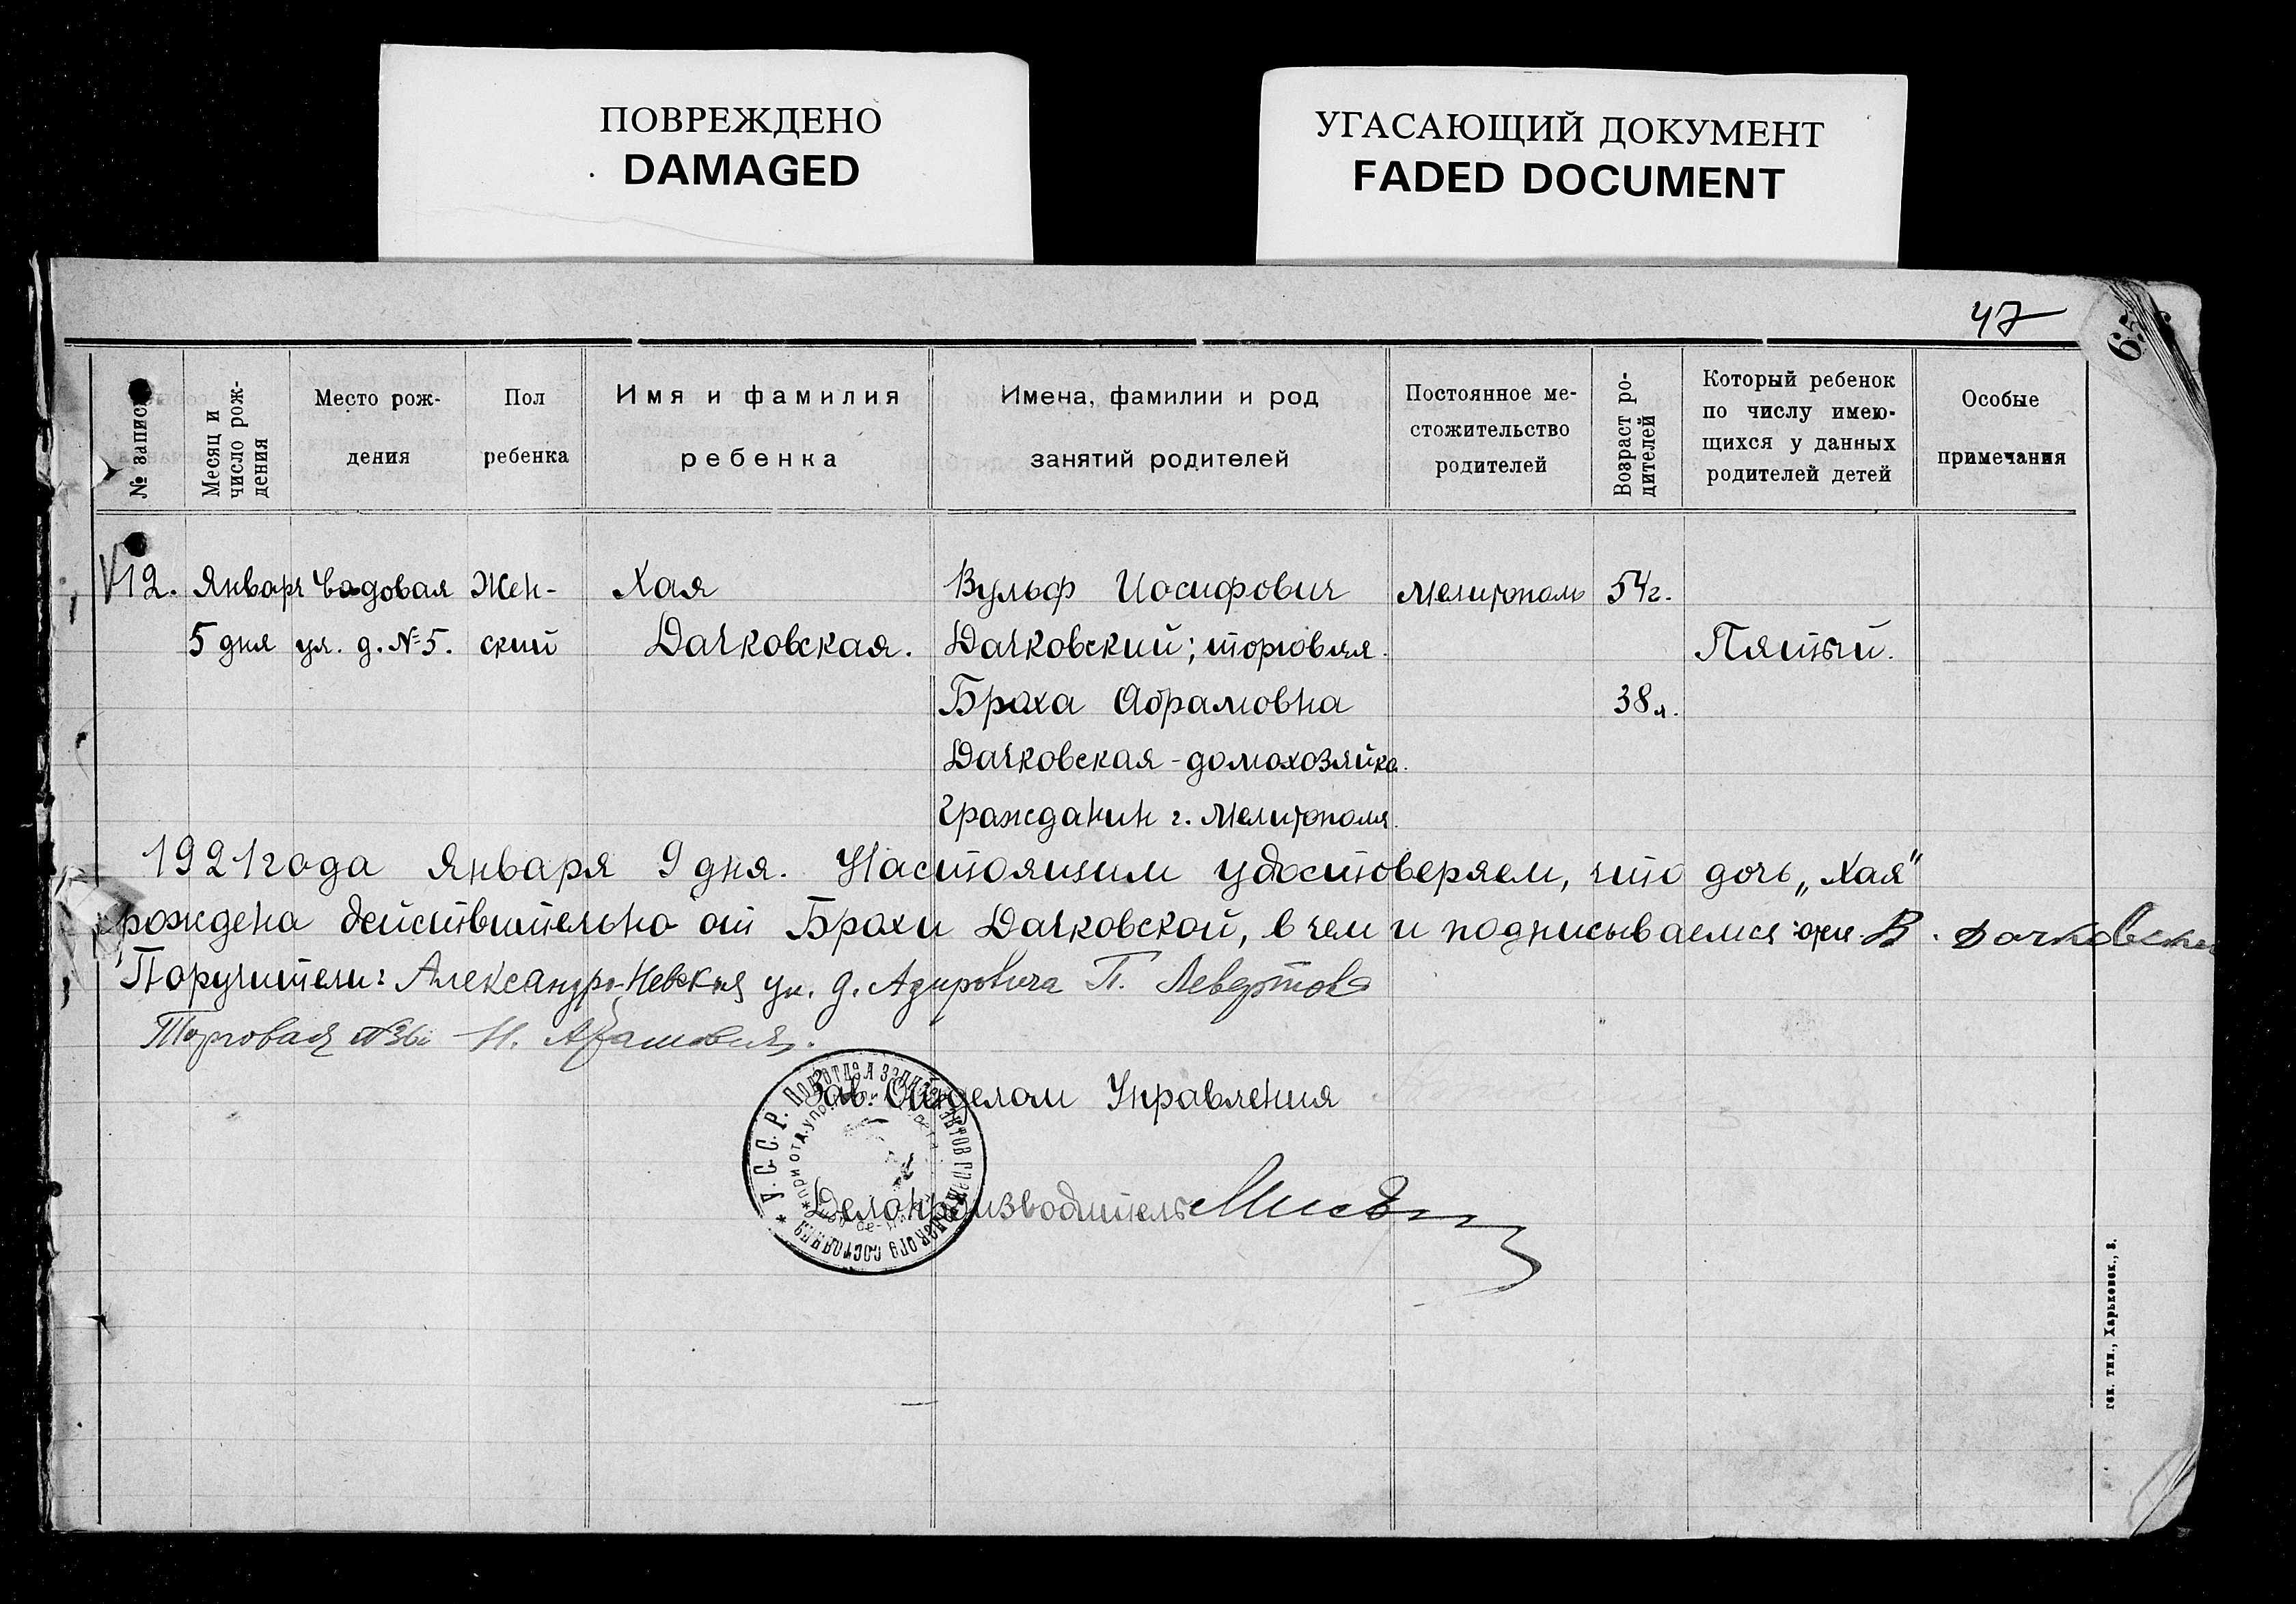 ПОВРЕЖДЕНО
DAMAGED
УГАСАЮЩИЙ ДОКУМЕНТ
FADED DOCUMENT
47
№ записи
Месяц и
число рож-
дения
Место рож-
дения
Пол
ребенка
Имя и фамилия
ребенка
Имена, фамилии и род
занятий родителей
Постоянное ме-
стожительство
родителей
Возраст ро-
дителей
Который ребенок
по числу имею-
щихся у данных
родителей детей
Особые
примечания
12. Января Садовая Жен- Хая Вульф Иосифович Мелитополь 54г.
5 дня ул. д. №5. ский Дачковская. Дачковский; торговля. Пятый.
Браха Абрамовна 38 л.
Дачковская - домохозяйка.
Гражданин г. Мелитополя.
1921 года Января 9 дня. Настоящим удостоверяем, что дочь „Хая"
рождена действительно от Брахи Дачковской, в чем и подписываемся: В. Дачковский
Поручители: Александро-Невская ул. д. П.
Торговая Н.
Зав. Отделом Управления
Делопроизводитель
У.С.С.Р. Подотдел записей актов гражданского состояния
гск. тип., Харьковск., 8.